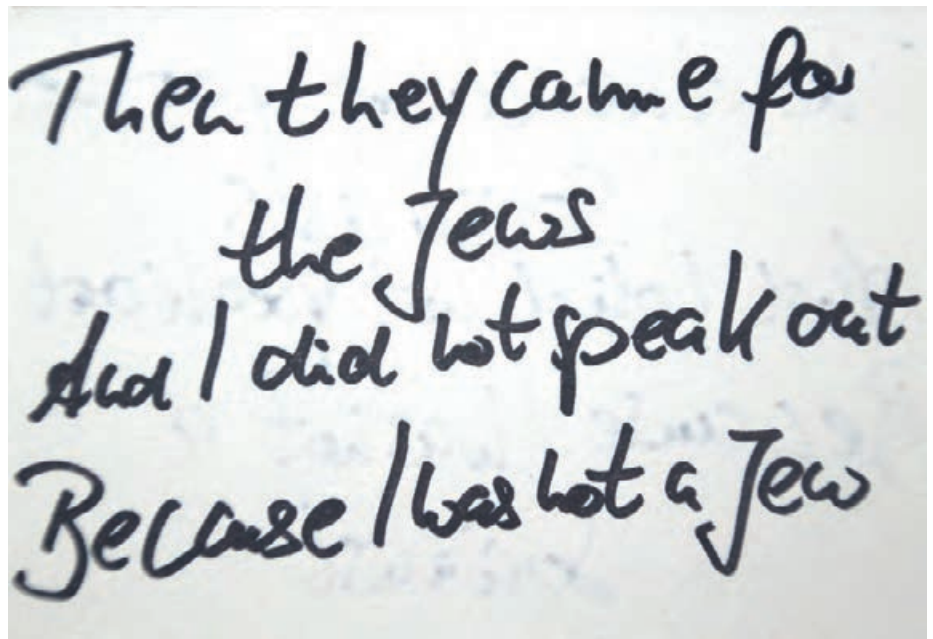 Then they came for
the Jews
And I did not speak out
Because I was not a Jew